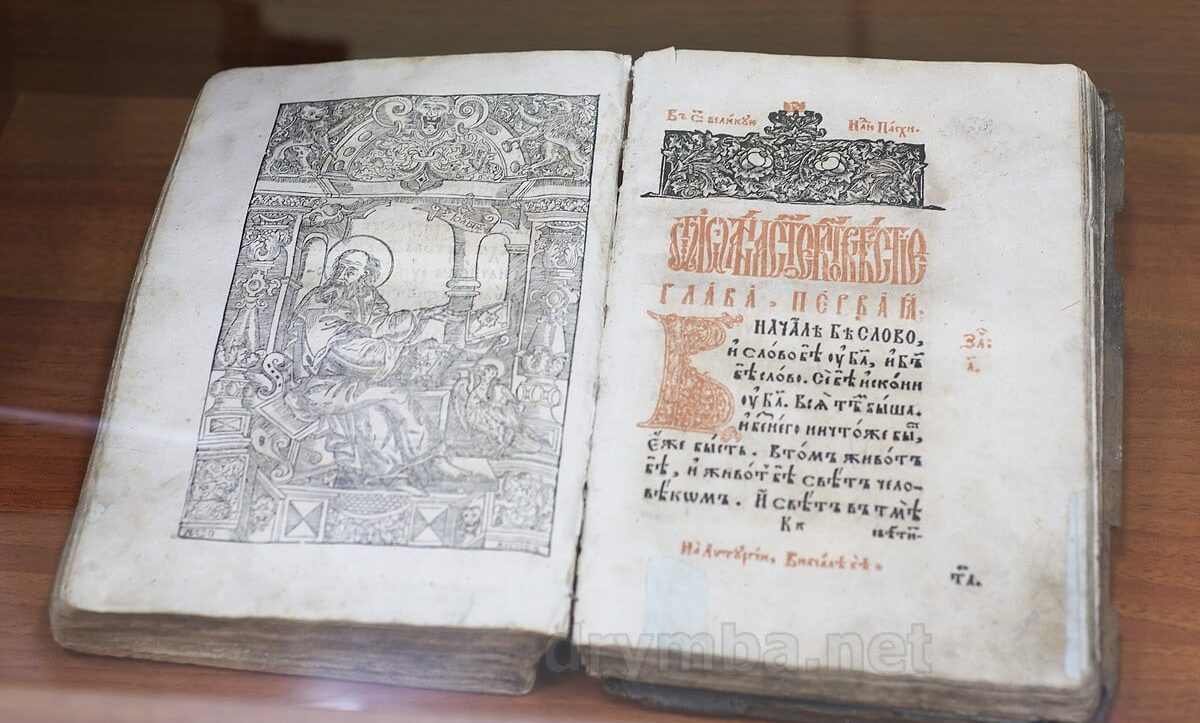 Въ С҃ великую Нл҃ю Пасхи.
ГЛАВА, ПЕРВАЯ.
НАЧАЛѢ БѢ СЛОВО,
и слово бѣ оу Б҃а, и Бг҃ъ
бѣ слово. Се бѣ искони
оу Б҃а. Вся тѣ́ быша.
и без него ничтоже бы́,
еже бысть. Втомъ животъ
бѣ, и живот бѣ свѣтъ чело-
вѣкомъ. И свѣтъ въ тмѣ
свѣти-
За҃:
а҃.
На Литургіи.
drymba.net